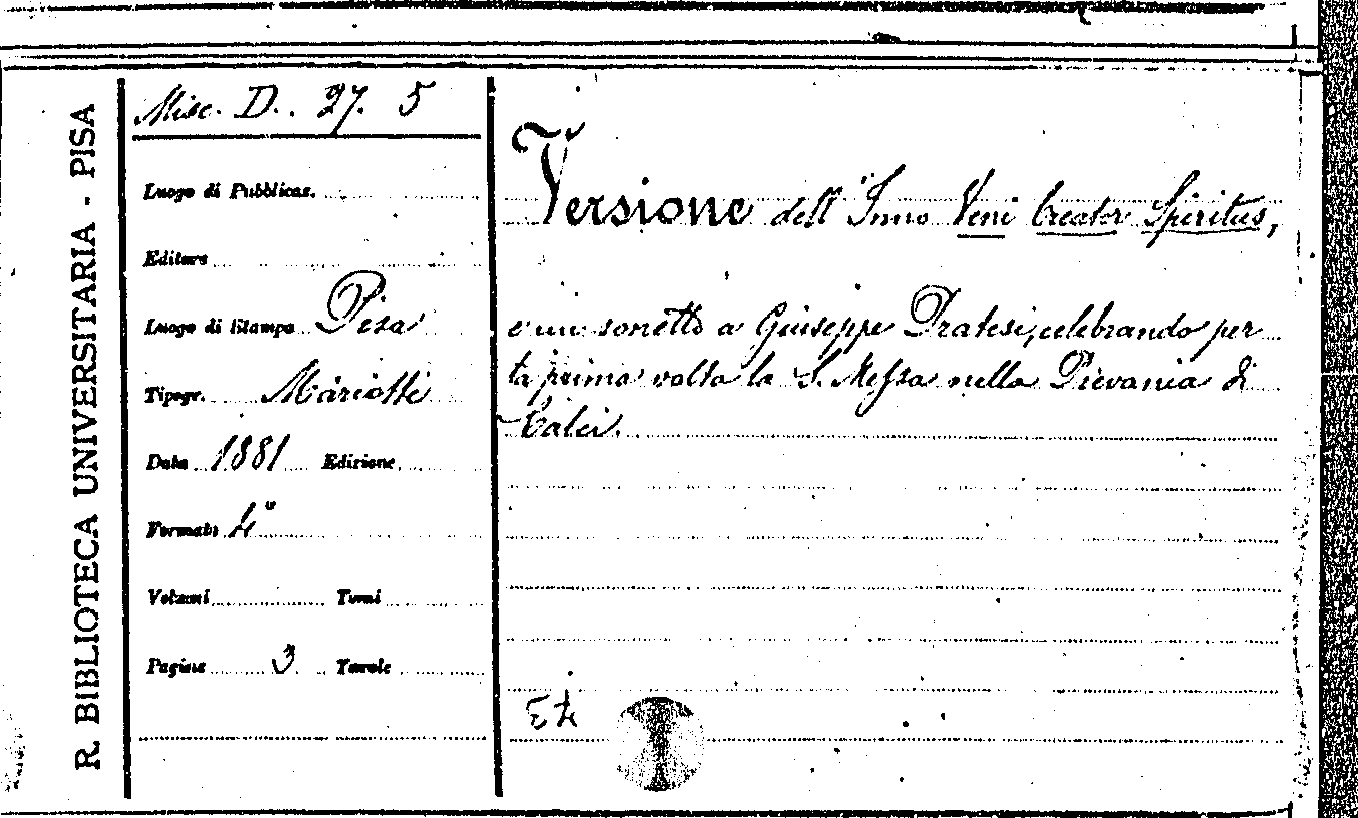 R. BIBLIOTECA UNIVERSITARIA - PISA
Misc. D. 27. 5
Luogo di Pubblicaz.
Editore
Luogo di Stampa Pisa
Tipogr. Mariotti
Data 1881 Edizione
Formato 4°
Volumi Tomi
Pagine 3 Tavole
Versione dell'Inno Veni Creator Spiritus,
e un sonetto a Giuseppe Pratesi, celebrando per
la prima volta la S. Messa nella Pievania di
Calci.